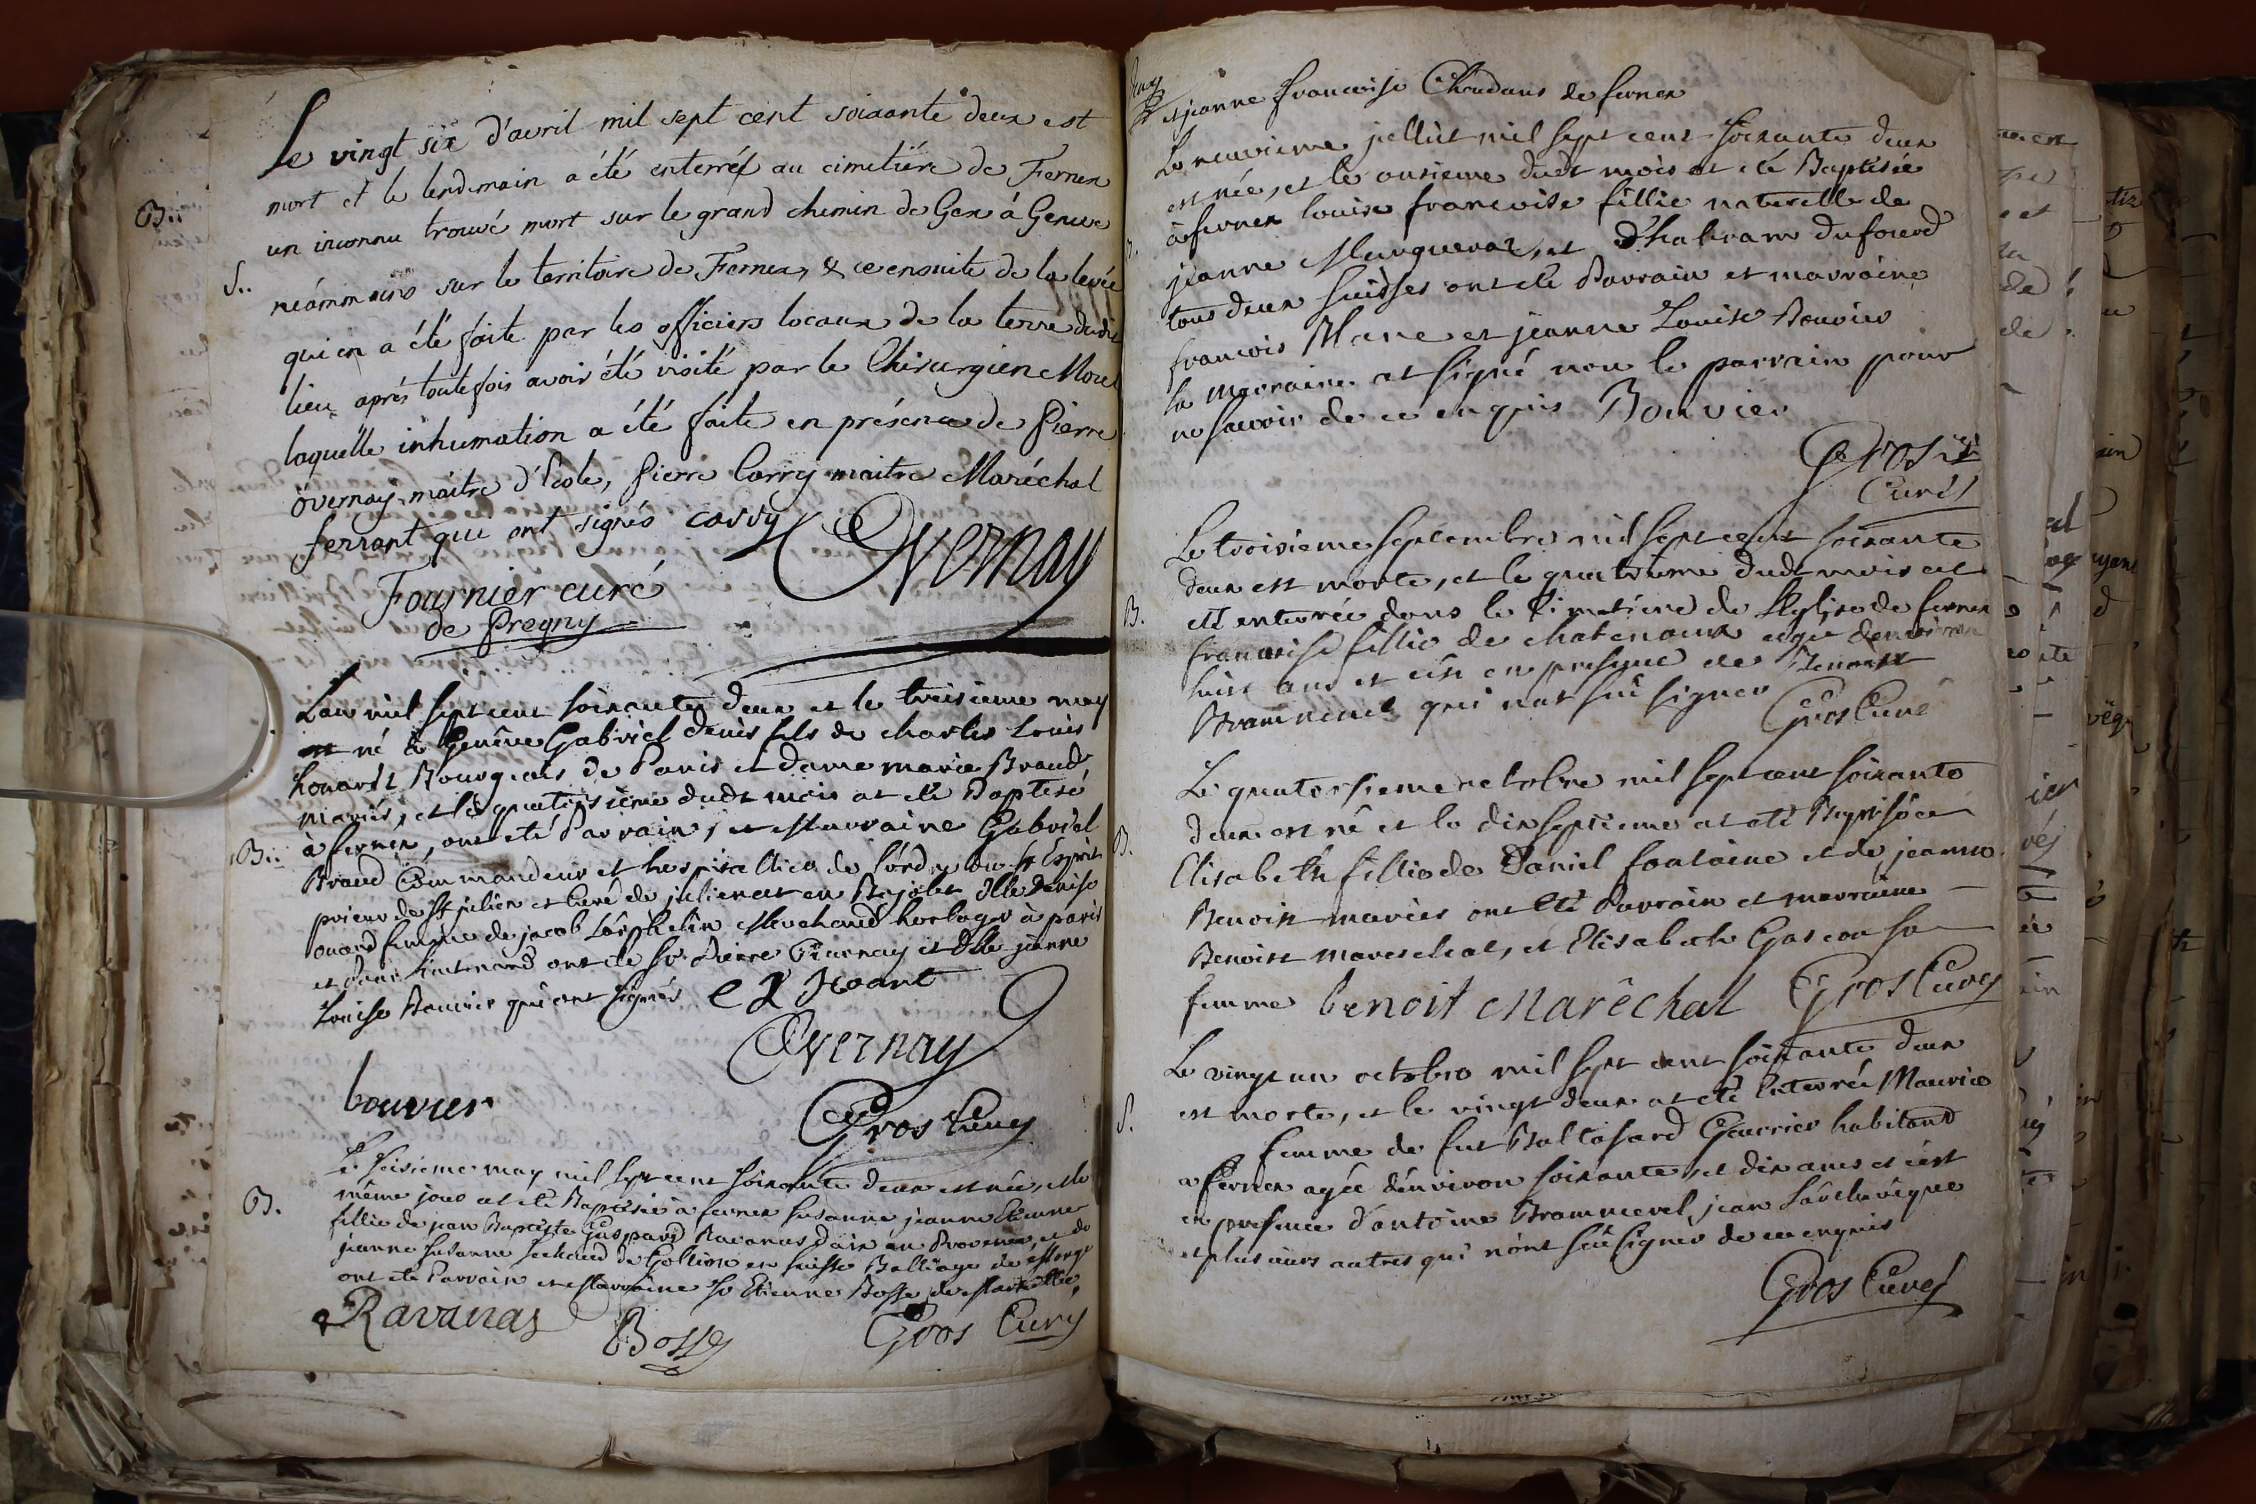 Le vingt six d'avril mil sept cent soixante deux est
mort et le lendemain a été enterré au cimetiére de Fernex
B..
un inconnu trouvé mort sur le grand chemin de Gex à Geneve
S..
néammoins sur le territoire de Fernex, & ce ensuite de la levée
qui en a été faite par les officiers locaux de la terre dudit
lieu après toutefois avoir été visité par le Chirurgien Morel
laquelle inhumation a été faite en présence de Pierre
övernay maitre d'école, Pierre Corry maitre Maréchal
ferrant qui ont signés corry Overnay
Fournier curé
de Pregny
Lan mil sept cent soixante deux et le troisieme may
est né à Genêve Gabriel denis fils de charles Louis
houard Bourgeois de Paris et dame marie Braud
mariés, et le quatorsième dudt mois at eté Baptisé
à fernex, ont eté Parrain, et Marraine Gabriel
B..
Braud Commandeur et hospitallier de l'ordre du St Esprit
prieur de St julien et Curé de julienas en Bojolet Dlle denise
ouard femme de jacob Marchand horloger à paris
et pour lieutenand ont ete Sr Pierre et Dlle jeanne
Louise Bouvier qui ont signés
Overnay
bouvier
Gros Curé
Le seisieme may mil sept cent soixante deux est née, et le
B.
même jour at eté Baptisée à fernex susanne jeanne Etienne
fillie de jean Baptiste Gaspard Ravanas d'aix en Provence, et de
jeanne susanne de Gollion en suisse Balliage de Morge
ont eté Parrain et Marraine Sr Etienne Bosse de Marseille,
Ravanas Bosse Gros Curé
et jeanne francoise Chaudans de fernex
Le neuvieme jellút mil sept cent soixante deux
est née, et le onsieme dudt mois at eté Baptisée
à fernex louise francoise fillie naturelle de
jeanne Marguerat, et d'habram dufourd
tous deux suisses ont eté Parrain et marraine
francois Mane et jeanne Louise Bouvier
la marraine at signé non le parrain pour
ne savoir de ce enquis Bouvier
Gros
Curé
Le troisieme septembre mil sept cent soixante
deux est morte, et le quatrieme dudt mois at
B.
eté enterrée dans le Cimetiere de L'église de fernex
francoise fillie de chatenoux agée denviron
huit ans et cêst en presence de Benoist
Brammerel qui n'at sçû signer Gros Curé
Le quatorsieme octobre mil sept cent soixante
deux est né et le dixseptieme at eté Baptisée
B.
Elisabeth fillie de Daniel fontaine et de jeanne
Benoist mariés ont eté Parrain et marraine
Benoist mareschal, et Elisabeth Gascon sa
femme benoit Marêchal Gros Curé
Le vingt un octobre mil sept cent soixante deux
est morte, et le vingt deux at eté Enterrée Maurise
S.
femme de fut Baltasard Guerrier habitand
a fernex agée d'environ soixante, et dix ans et c'est
en presence d'antoine Brammerel, jean
et plusieurs autres qui n'ont sçû signer de ce enquis
Gros Curé